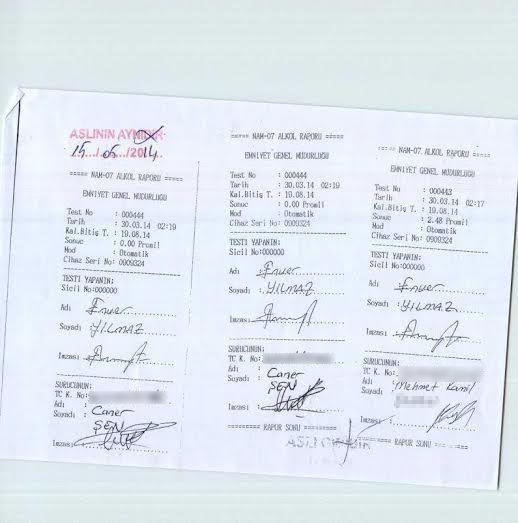 ASLININ AYNIDIR
15/05/2014
===== NAM-07 ALKOL RAPORU =====
EMNIYET GENEL MUDURLUGU
Test No : 000444
Tarih : 30.03.14 02:19
Kal.Bitiş T. : 19.08.14
Sonuc : 0.00 Promil
Mod : Otomatik
Cihaz Seri No: 0909324
TESTI YAPANIN:
Sicil No:000000
Adı : Enver
Soyadı : YILMAZ
Imzası :
SURUCUNUN:
TC K. No:
Adı : Caner
Soyadı : ŞEN
Imzası :
===== NAM-07 ALKOL RAPORU =====
EMNIYET GENEL MUDURLUGU
Test No : 000444
Tarih : 30.03.14 02:19
Kal.Bitiş T. : 19.08.14
Sonuc : 0.00 Promil
Mod : Otomatik
Cihaz Seri No: 0909324
TESTI YAPANIN:
Sicil No:000000
Adı : Enver
Soyadı : YILMAZ
Imzası :
SURUCUNUN:
TC K. No:
Adı : Caner
Soyadı : ŞEN
Imzası :
======== RAPOR SONU ========
===== NAM-07 ALKOL RAPORU =====
EMNIYET GENEL MUDURLUGU
Test No : 000443
Tarih : 30.03.14 02:17
Kal.Bitiş T. : 19.08.14
Sonuc : 2.48 Promil
Mod : Otomatik
Cihaz Seri No: 0909324
TESTI YAPANIN:
Sicil No:000000
Adı : Enver
Soyadı : YILMAZ
Imzası :
SURUCUNUN:
TC K. No:
Adı : Mehmet Kamil
Soyadı :
Imzası :
======== RAPOR SONU ========